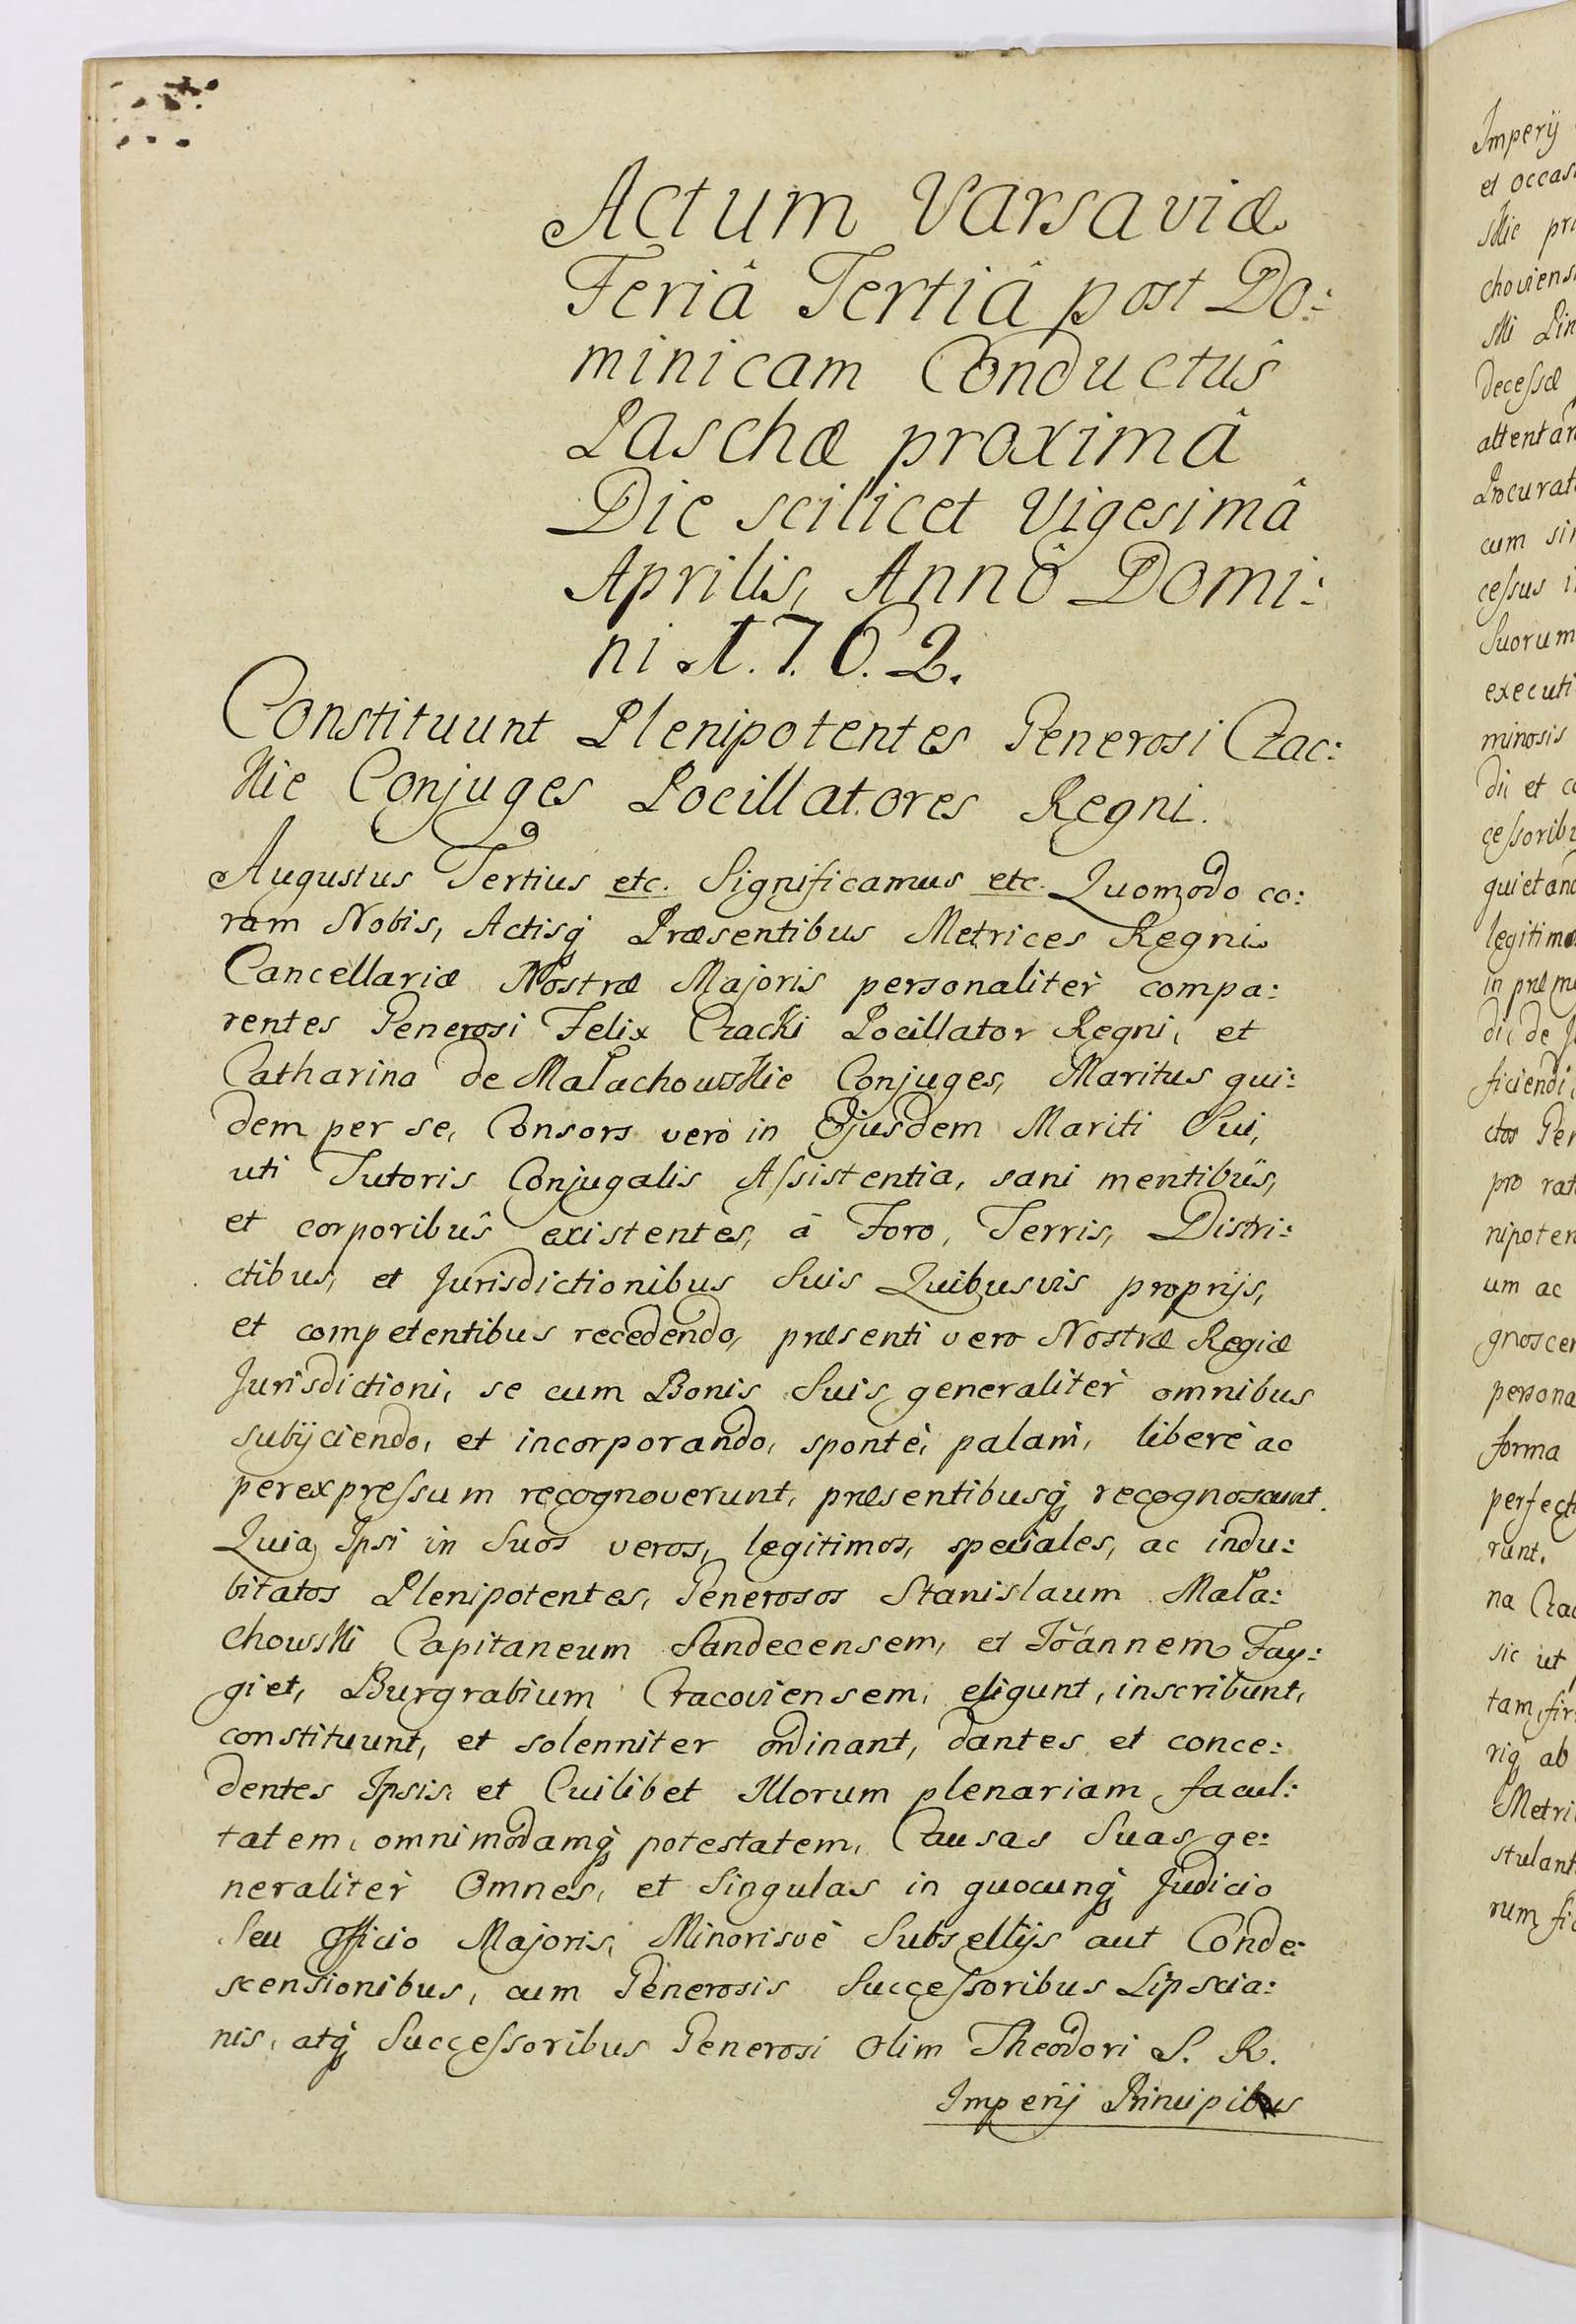 Actum Varsaviæ
Feriâ Tertiâ post Do:
minicam Conductûs
Paschæ proximâ
Die scilicet Vigesimâ
Aprilis, Annô Domi:
ni 1.7.6.2.
Constituunt Plenipotentes Generosi Czac:
kie Conjuges Pocillatores Regni.
Augustus Tertius etc. Significamus etc. Quomodo co:
ram Nobis, Actisq Præsentibus Metrices Regni
Cancellariæ Nostræ Majoris personalitèr compa:
rentes Generosi Felix Czacki Pocillator Regni, et
Catharina de Małachowskie Conjuges, Maritus qui:
dem per se, Consors verò in Ejusdem Mariti Sui,
uti Tutoris Conjugalis Assistentia, sani mentibûs,
et corporibûs existentes, â Foro, Terris, Distri:
ctibus, et Jurisdictionibus Suis Quibusvis proprijs,
et competentibus recedendo, præsenti vero Nostræ Regiæ
Jurisdictioni, se cum Bonis Suis generalitèr omnibus
subijciendo, et incorporando, spontè, palam, liberè ac
per expressum recognoverunt, præsentibusq recognoscunt.
Quia Ipsi in Suos veros, legitimos, speciales, ac indu:
bitatos Plenipotentes, Generosos Stanislaum Mała:
chowski Capitaneum Sandecensem, et Joannem Fay:
giet, Burgrabium Cracoviensem, eligunt, inscribunt,
constituunt, et solenniter ordinant, dantes et conce:
dentes Ipsis et Cuilibet Illorum plenariam facul:
tatem, omnimodamq potestatem, Causas Suas ge:
neralitèr Omnes, et Singulas in quocunq Judicio
Seu Officio Majoris, Minorisvè Subsellijs aut Conde:
scensionibus, cum Generosis Successoribus Lipscia:
nis, atq Successoribus Generosi Olim Theodori S. R.
Imperij Principibus
Imperij
et
choviens
decessæ
cum
cessus
Suorum
executi
minosis
dii et
ficiendi
nipoten
um ac
gnoscen
persona
forma
perfect
runt.
sic ut
ab
Metri
stulant
rum